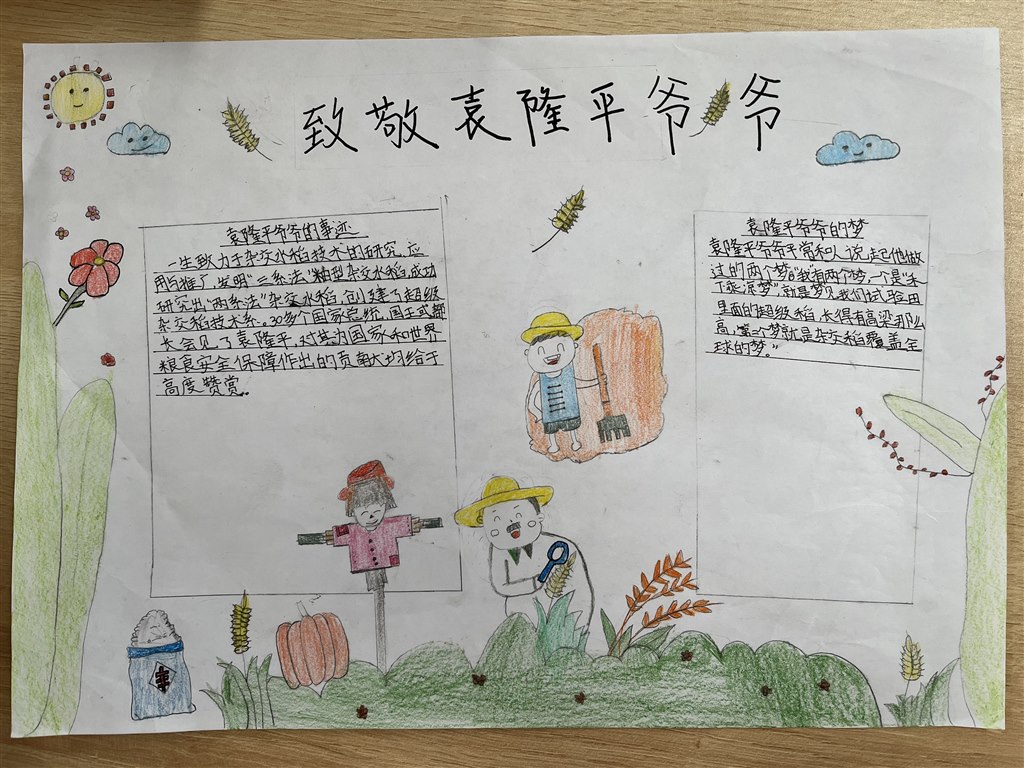 致敬袁隆平爷爷
袁隆平爷爷的事迹
一生致力于杂交水稻技术的研究、应
用与推广,发明"三系法"籼型杂交水稻,成功
研究出"两系法"杂交水稻,创建了超级
杂交稻技术系。30多个国家总统、国王式都
长会见了袁隆平,对其为国家和世界
粮食安全保障作出的贡献均给于
高度赞赏。
袁隆平爷爷的梦
袁隆平爷爷平常和人说起他做
过的两个梦:"我有两个梦,一个是"禾
下乘凉梦",就是梦见我们试验田
里面的超级稻,长得有高粱那么
高,第二个梦就是杂交稻覆盖全
球的梦。"